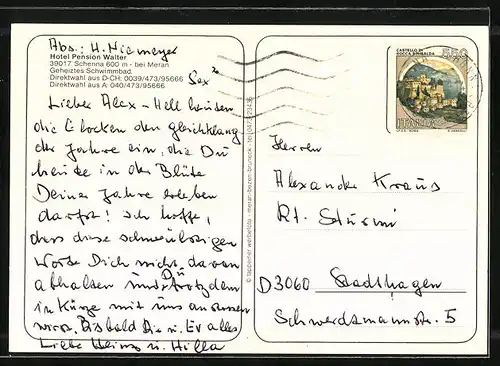 Abs.: H. Niemeyer
Hotel Pension Walter
39017 Schenna 600 m - bei Meran
Geheiztes Schwimmbad.
Direktwahl aus D-CH: 0039/473/95666
Direktwahl aus A: 040/473/95666
Lieber Alex - Hell läuten
die Glocken den gleichklang
der Jahre ein, die Du
heute in der Blüte
Deiner Jahre erleben
darfst! Ich hoffe,
dass diese schwülstigen
Worte Dich nicht davon
abhalten Du trotzdem
in Kürze mit uns
wirst. Bis bald Die u. Ev alles
Liebe Heinz u. Hilla
© tappeiner werbefoto - meran-bozen-bruneck
CASTELLO DI
ROCCA SINIBALDA
550
ITALIA
I.P.Z.S. - ROMA
Herren
Alexander Kraus
Rt. Sturmi
D 3060 Stadthagen
Schwerdtmannstr. 5